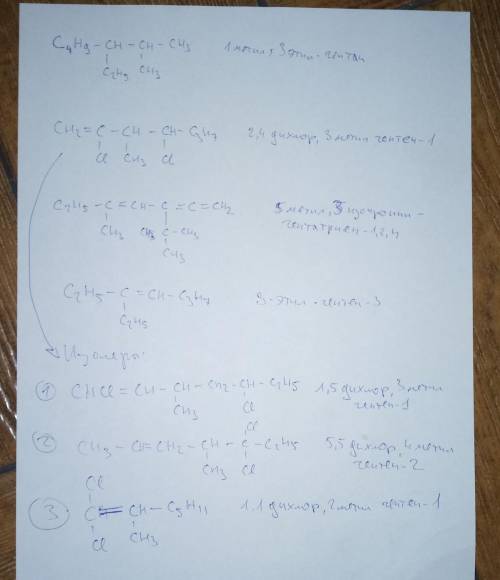 C4H9 – CH – CH – CH3   1 метил, 3 этил-гептан
C2H5 CH3
CH2 = C – CH – CH – C3H7   2,4 дихлор, 3 метил гептен-1
Cl CH3 Cl
C2H5 – C = CH – C = C = CH2   5 метил, 3
CH3 CH3 – C – CH3   гептатриен-1,2,4
CH3
C2H5 – C = CH – C3H7   3-этил-гептен-3
C2H5
Изомеры:
① CHCl = CH – CH – CH2 – CH – C2H5   1,5 дихлор, 3 метил
CH3 Cl   гептен-1
Cl
② CH3 – CH = CH2 – CH – C – C2H5   5,5 дихлор, 4 метил
CH3 Cl   гептен-2
Cl
③ C = CH – C5H11   1.1 дихлор, 2 метил гептен-1
Cl CH3